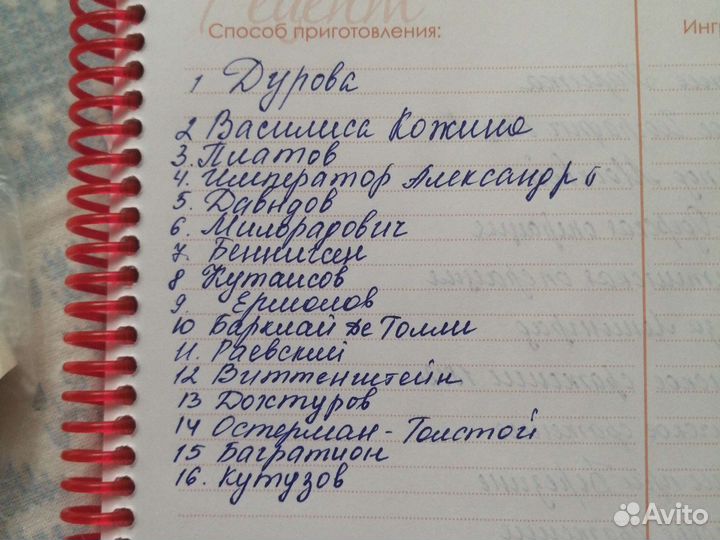 Рецепт
Способ приготовления:
Инг
1 Дурова
2 Василиса Кожина
3. Платов
4. Император Александр I
5. Давыдов
6. Милорадович
7. Беннигсен
8 Кутаисов
9. Ермолов
10 Барклай де Толли
11. Раевский
12 Витгенштейн
13 Дохтуров
14 Остерман-Толстой
15 Багратион
16. Кутузов
Avito